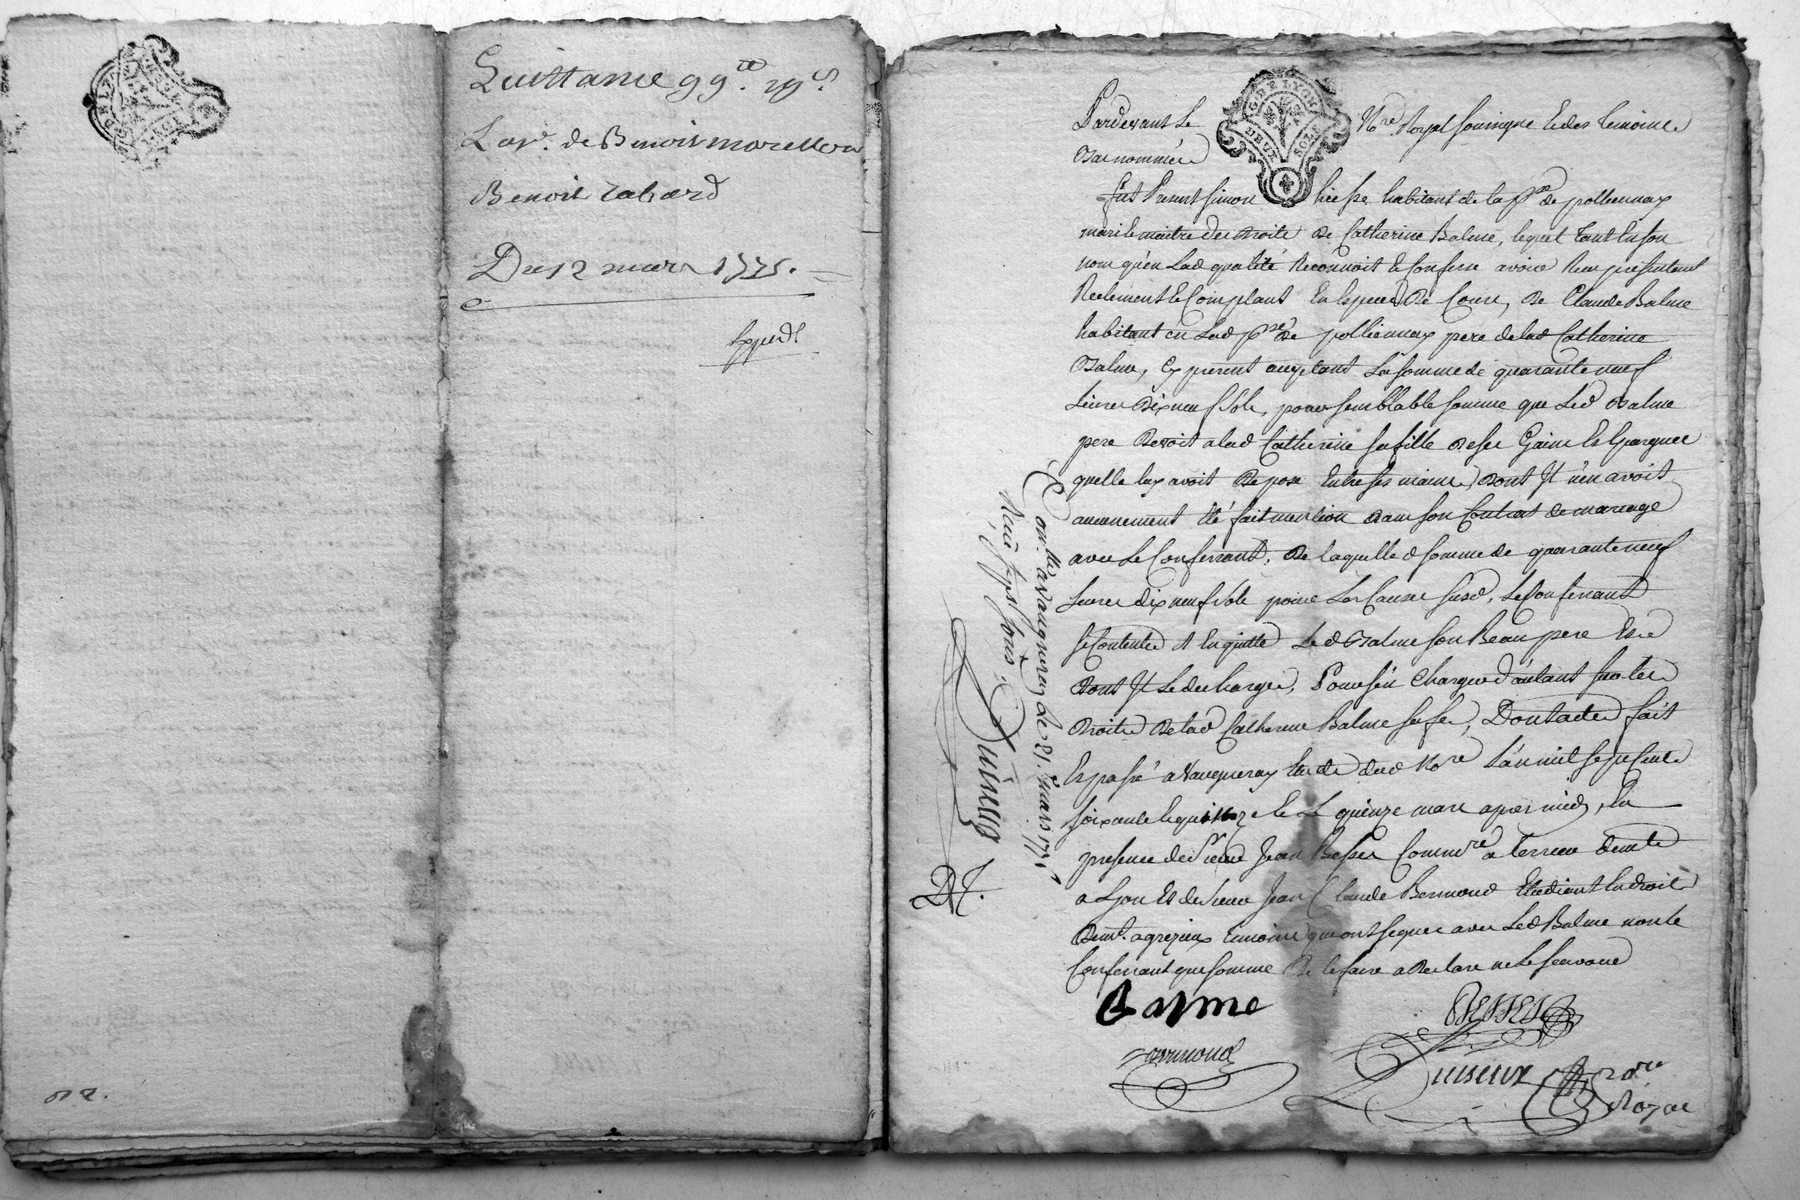 Quittance 99tt. 19s.
de Benoit morellon
Benoit
Du 12 mars 1775.
Expedt
Pardevant Le Nre Royal soussigné Et des temoins
Bas nommés
fut Present Simon habitant de la psse de pollionnay
mari et maitre des droits de Catherine Balme, lequel tant En son
nom qu'en Lad qualité Reconnoit Et Confesse avoir Reçu présentement
Reelement Et Comptant En Especes De Cours, De Claude Balme
habitant en Lad psse de pollionnay pere de lad Catherine
Balme, Cy present acceptant La somme de quarante neuf
Livres Dix neuf sols, pour semblable somme que Led Balme
pere Devoit a lad Catherine sa fille de ses Gains Et Epargnes
quelle luy avoit Deposé Entre ses mains, Dont Il n'en avoit
aucunement été fait mention dans son Contrat de mariage
avec Le Confessant, De laquelle d somme de quarante neuf
Livres dix neuf sols pour Les Causes susd, Le Confessant
se Contente Et En quitte Led Balme son Beau pere Et
Dont Il Le decharge, Pour s'en Charger d'autant sur les
Droits De lad Catherine Balme sa fe, Dont acte fait
Et passé a Vaugneray Etude dud Nore L'an mil sept cent
soixante et quinze le quinze mars apres midy, En
presence de Sieur Jean Besses Commre a terrier demt
a Lyon Et de Sieur Jean Claude Bermond Etudiant En droit
Demt a grezieu temoins qui ont signé avec Led Balme non le
Confessant que sommé De le faire a Declaré ne Le sçavoir
Balme
BESSES
Bermond
Nore
Royal
Con.llé a Vaugneray le 21. mars 1775
Reçu sols.
G. DE LYON
DEUX SOLS